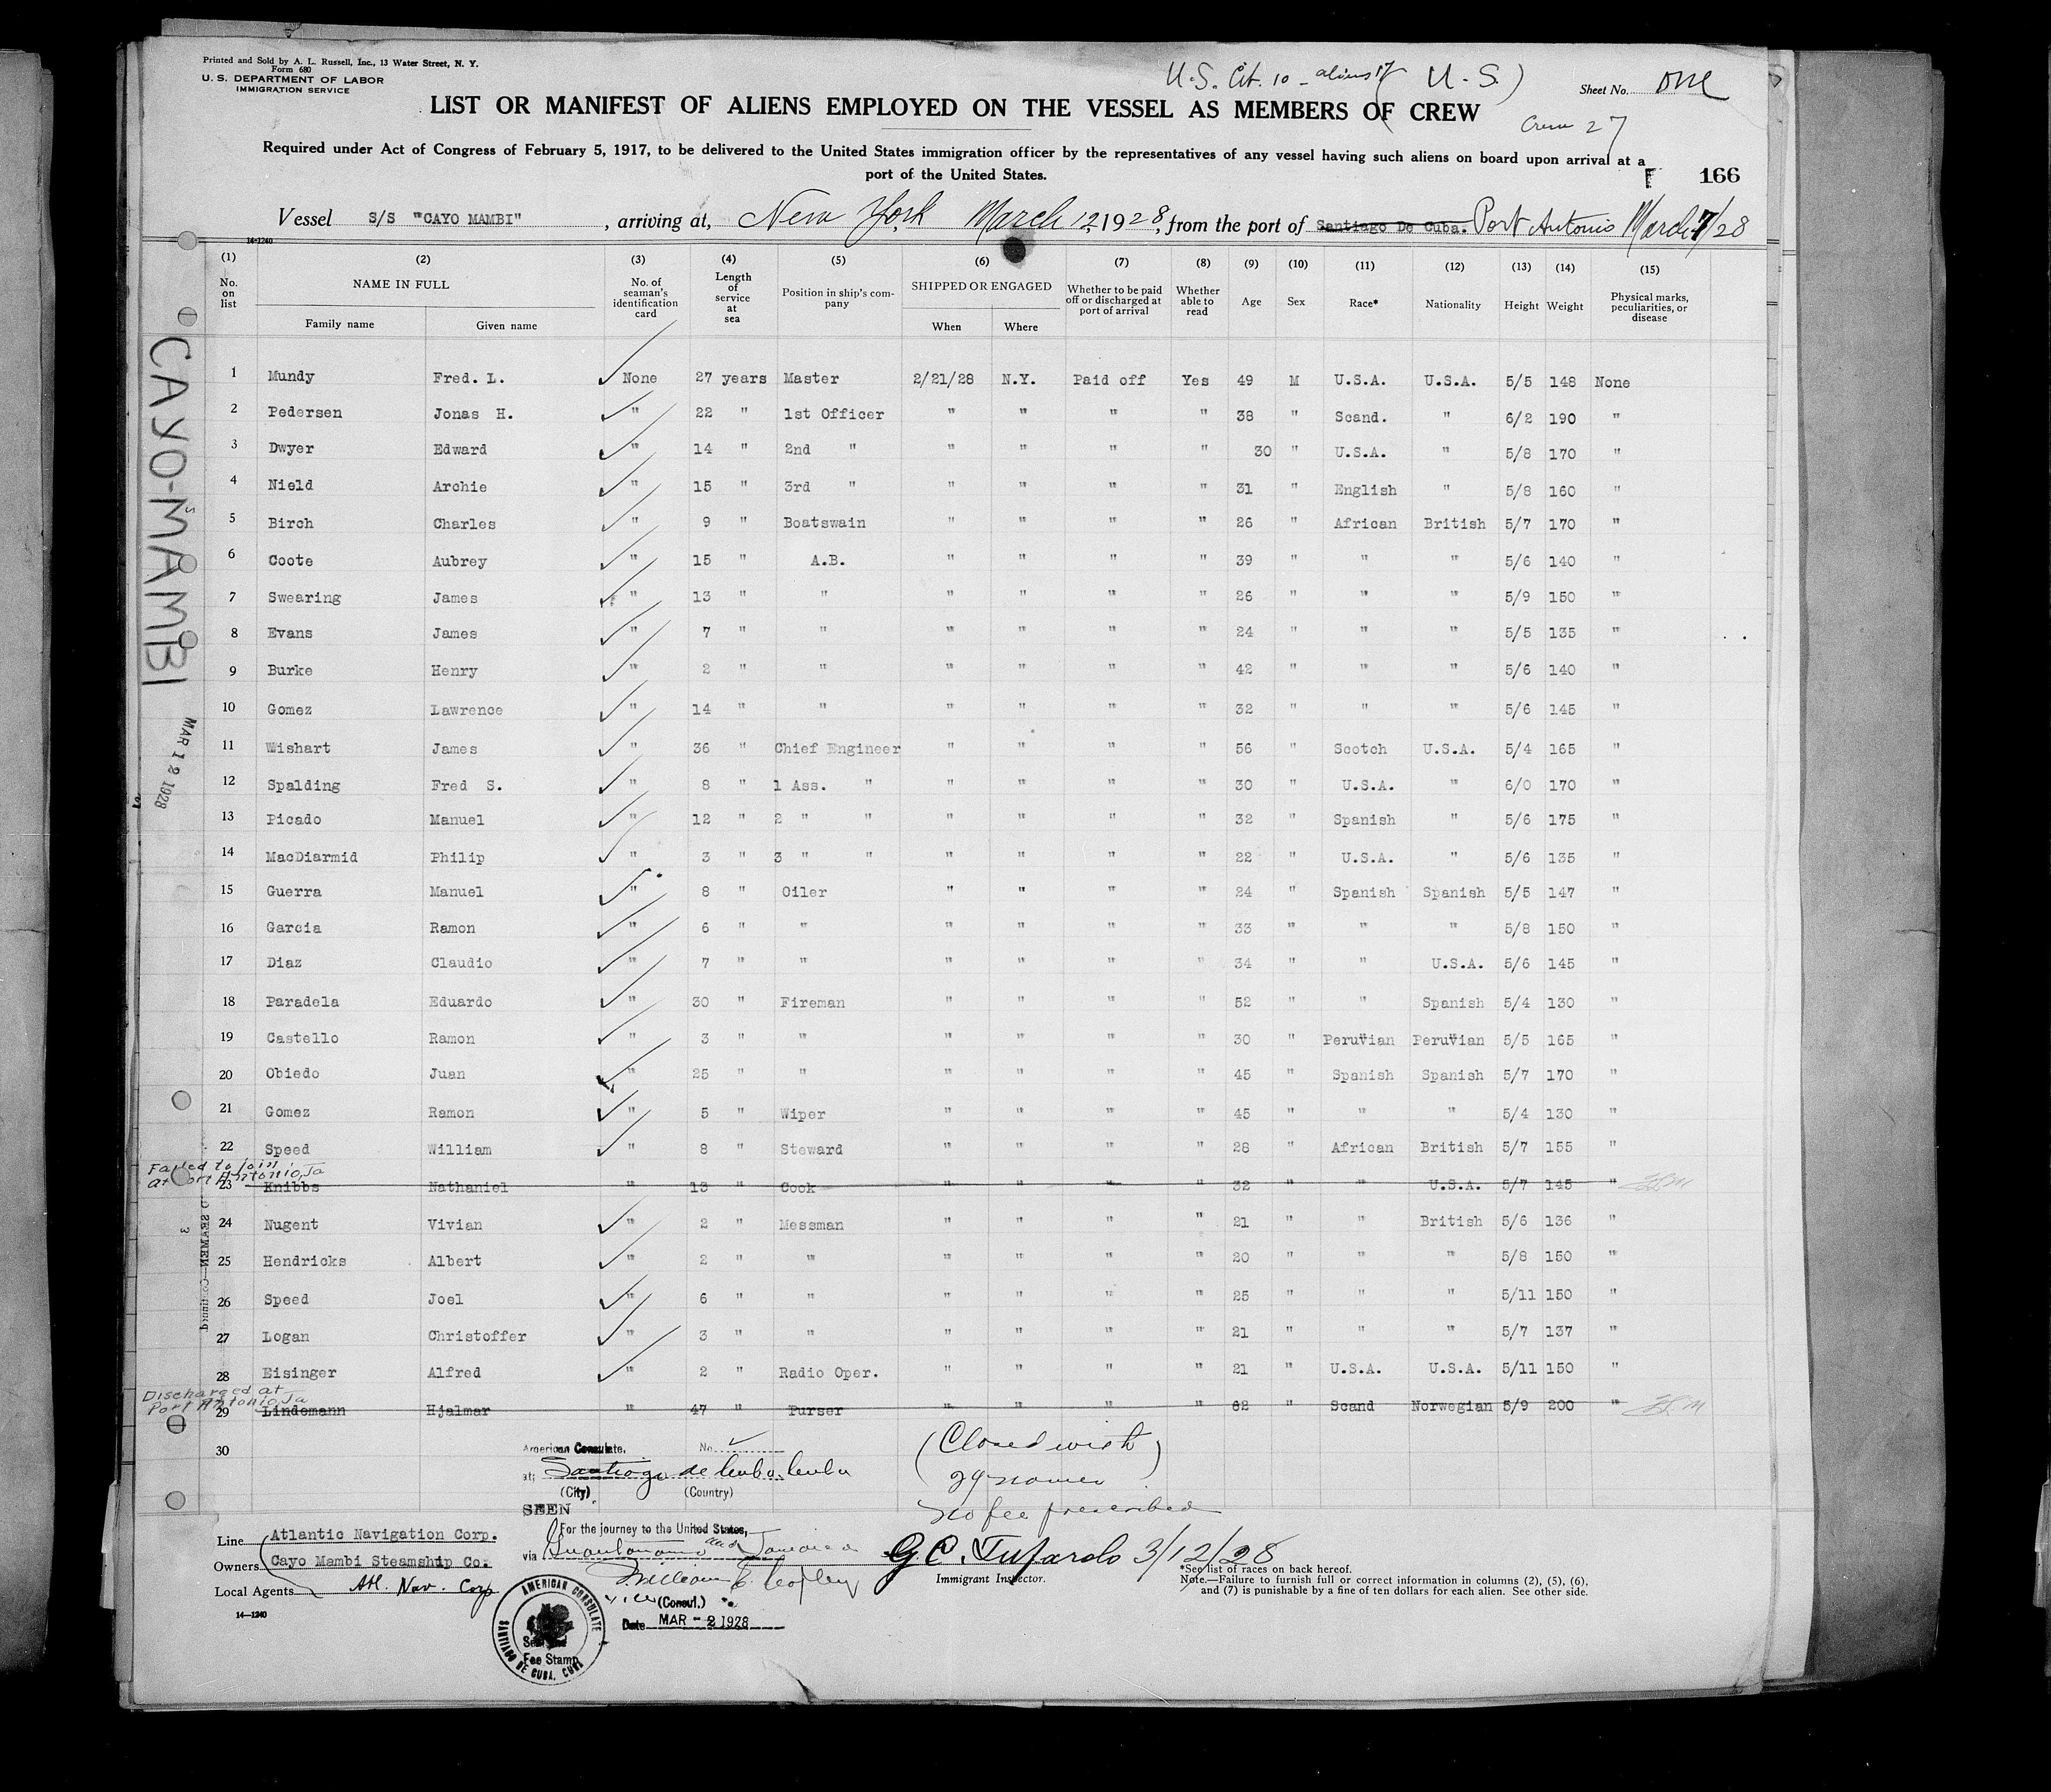 Printed and Sold by A. L. Russell, Inc., 13 Water Street, N. Y.
Form 680
U. S. DEPARTMENT OF LABOR
IMMIGRATION SERVICE
U.S. Cit. 10 - aliens 17 ( U.S.)
Sheet No. One
LIST OR MANIFEST OF ALIENS EMPLOYED ON THE VESSEL AS MEMBERS OF CREW
Crew 27
Required under Act of Congress of February 5, 1917, to be delivered to the United States immigration officer by the representatives of any vessel having such aliens on board upon arrival at a
port of the United States.
166
Vessel S/S "CAYO MAMBI", arriving at, New York March 12, 1928, from the port of Santiago De Cuba. Port Antonio March 7/28
14-1240
(1) (2) (3) (4) (5) (6) (7) (8) (9) (10) (11) (12) (13) (14) (15)
No. on list NAME IN FULL Family name Given name No. of seaman's identification card Length of service at sea Position in ship's company SHIPPED OR ENGAGED When Where Whether to be paid off or discharged at port of arrival Whether able to read Age Sex Race* Nationality Height Weight Physical marks, peculiarities, or disease
1 Mundy Fred. L. None 27 years Master 2/21/28 N.Y. Paid off Yes 49 M U.S.A. U.S.A. 5/5 148 None
2 Pedersen Jonas H. " 22 " 1st Officer " " " " 38 " Scand. " 6/2 190 "
3 Dwyer Edward " 14 " 2nd " " " " " 30 " U.S.A. " 5/8 170 "
4 Nield Archie " 15 " 3rd " " " " " 31 " English " 5/8 160 "
5 Birch Charles " 9 " Boatswain " " " " 26 " African British 5/7 170 "
6 Coote Aubrey " 15 " A.B. " " " " 39 " " " 5/6 140 "
7 Swearing James " 13 " " " " " " 26 " " " 5/9 150 "
8 Evans James " 7 " " " " " " 24 " " " 5/5 135 "
9 Burke Henry " 2 " " " " " " 42 " " " 5/6 140 "
10 Gomez Lawrence " 14 " " " " " " 32 " " " 5/6 145 "
11 Wishart James " 36 " Chief Engineer " " " " 56 " Scotch U.S.A. 5/4 165 "
12 Spalding Fred S. " 8 " 1 Ass. " " " " " 30 " U.S.A. " 6/0 170 "
13 Picado Manuel " 12 " 2 " " " " " " 32 " Spanish " 5/6 175 "
14 MacDiarmid Philip " 3 " 3 " " " " " " 22 " U.S.A. " 5/6 135 "
15 Guerra Manuel " 8 " Oiler " " " " 24 " Spanish Spanish 5/5 147 "
16 Garcia Ramon " 6 " " " " " " 33 " " " 5/8 150 "
17 Diaz Claudio " 7 " " " " " " 34 " " U.S.A. 5/6 145 "
18 Paradela Eduardo " 30 " Fireman " " " " 52 " " Spanish 5/4 130 "
19 Castello Ramon " 3 " " " " " " 30 " Peruvian Peruvian 5/5 165 "
20 Obiedo Juan " 25 " " " " " " 45 " Spanish Spanish 5/7 170 "
21 Gomez Ramon " 5 " Wiper " " " " 45 " " " 5/4 130 "
22 Speed William " 8 " Steward " " " " 28 " African British 5/7 155 "
Failed to join
at Port Antonio, Ja
23 Knibbs Nathaniel " 13 " Cook " " " " 32 " " U.S.A. 5/7 145 "
24 Nugent Vivian " 2 " Messman " " " " 21 " " British 5/6 136 "
25 Hendricks Albert " 2 " " " " " " 20 " " " 5/8 150 "
26 Speed Joel " 6 " " " " " " 25 " " " 5/11 150 "
27 Logan Christoffer " 3 " " " " " " 21 " " " 5/7 137 "
28 Eisinger Alfred " 2 " Radio Oper. " " " " 21 " U.S.A. U.S.A. 5/11 150 "
Discharged at
Port Antonio, Ja
29 Lindemann Hjalmar " 47 " Purser " " " " 62 " Scand Norwegian 5/9 200 "
30
CAYO-MAMBI
MAR 12 1928
American Consulate. No.
at; Santiago de Cuba, Cuba
(City) (Country)
SEEN
For the journey to the United States,
via Guantanamo and Jamaica
(Consul.)
Date MAR - 2 1928
AMERICAN CONSULATE
SANTIAGO DE CUBA, CUBA
Fee Stamp
(Closed with
29 names
no fee prescribed
Line Atlantic Navigation Corp.
Owners Cayo Mambi Steamship Co.
Local Agents Atl. Nav. Corp
14—1240
G.C. Tufarolo 3/12/28
Immigrant Inspector.
*See list of races on back hereof.
Note.—Failure to furnish full or correct information in columns (2), (5), (6),
and (7) is punishable by a fine of ten dollars for each alien. See other side.